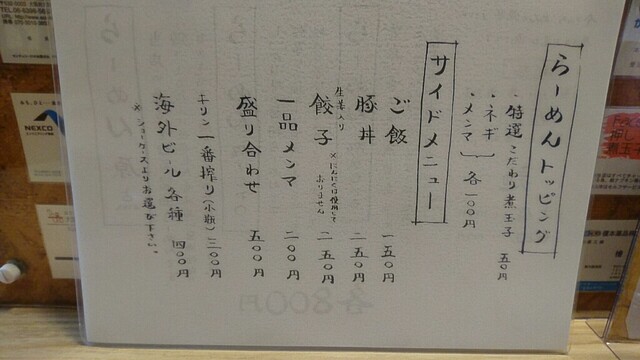 らーめんトッピング
・特選こだわり煮玉子 五〇円
・ネギ
・メンマ 各一〇〇円
サイドメニュー
ご飯 一五〇円
豚丼 二五〇円
生姜入り
餃子 ※にんにくは使用しておりません 二五〇円
一品メンマ 二〇〇円
盛り合わせ 五〇〇円
キリン一番搾り(小瓶) 三〇〇円
海外ビール各種 四〇〇円
※ショーケースよりお選び下さい。
各800円
NEXCO